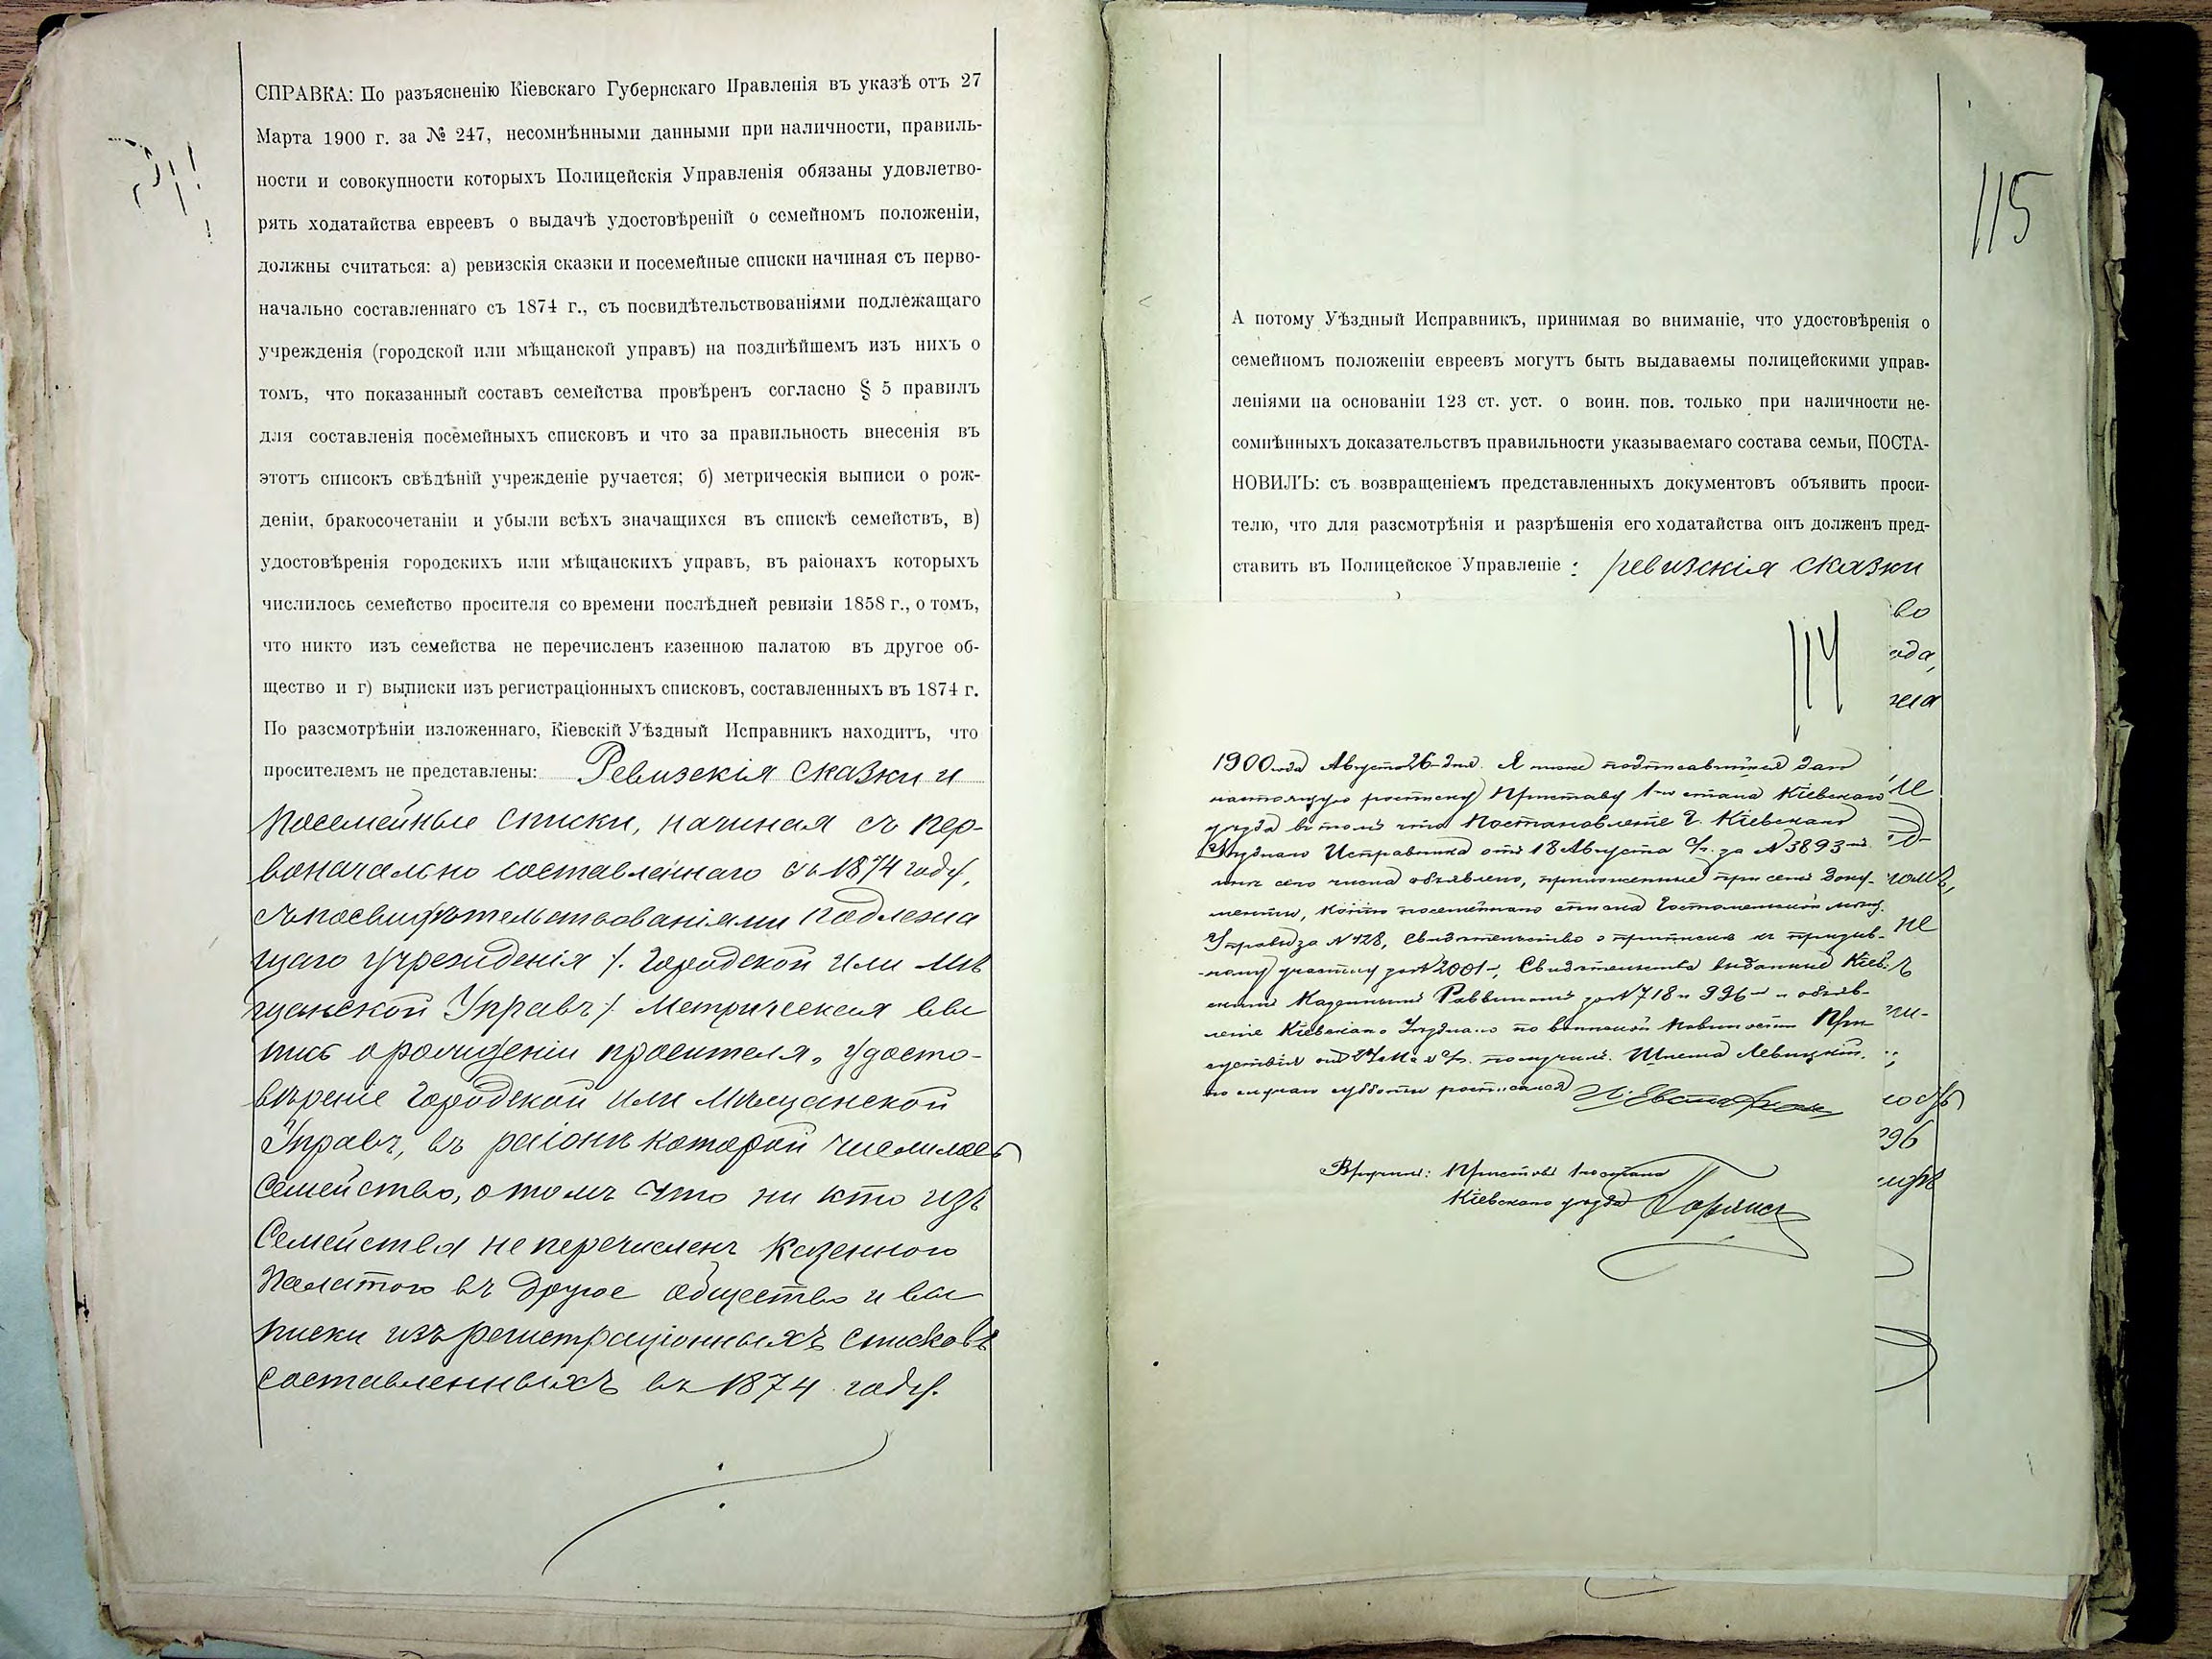 СПРАВКА: По разъясненію Кіевскаго Губернскаго Правленія въ указѣ отъ 27
Марта 1900 г. за № 247, несомнѣнными данными при наличности, правиль-
ности и совокупности которыхъ Полицейскія Управленія обязаны удовлетво-
рять ходатайства евреевъ о выдачѣ удостовѣреній о семейномъ положеніи,
должны считаться: а) ревизскія сказки и посемейные списки начиная съ перво-
начально составленнаго съ 1874 г., съ посвидѣтельствованіями подлежащаго
учрежденія (городской или мѣщанской управъ) на позднѣйшемъ изъ нихъ о
томъ, что показанный составъ семейства провѣренъ согласно § 5 правилъ
для составленія посемейныхъ списковъ и что за правильность внесенія въ
этотъ списокъ свѣдѣній учрежденіе ручается; б) метрическія выписи о рож-
деніи, бракосочетаніи и убыли всѣхъ значащихся въ спискѣ семействъ, в)
удостовѣренія городскихъ или мѣщанскихъ управъ, въ раіонахъ которыхъ
числилось семейство просителя со времени послѣдней ревизіи 1858 г., о томъ,
что никто изъ семейства не перечисленъ казенною палатою въ другое об-
щество и г) выписки изъ регистраціонныхъ списковъ, составленныхъ въ 1874 г.
По разсмотрѣніи изложеннаго, Кіевскій Уѣздный Исправникъ находитъ, что
просителемъ не представлены: Ревизскія сказки и
посемейные списки, начиная съ пер-
воначально составленнаго съ 1874 году,
съ посвидѣтельствованіями подлежа
щаго учрежденія /. Городской или мѣ
щанской Управъ ./ Метрическая вы
пись о рожденіи просителя, удосто-
вѣреніе Городской или Мѣщанской
Управъ, въ районѣ которой числилось
семейство, о томъ что ни кто изъ
Семейства не перечисленъ Казенною
Палатою въ другое общество и вы
писки изъ регистраціонныхъ списковъ
составленныхъ въ 1874 году.
115
А потому Уѣздный Исправникъ, принимая во вниманіе, что удостовѣренія о
семейномъ положеніи евреевъ могутъ быть выдаваемы полицейскими управ-
леніями на основаніи 123 ст. уст. о воин. пов. только при наличности не-
сомнѣнныхъ доказательствъ правильности указываемаго состава семьи, ПОСТА-
НОВИЛЪ: съ возвращеніемъ представленныхъ документовъ объявить проси-
телю, что для разсмотрѣнія и разрѣшенія его ходатайства онъ долженъ пред-
ставить въ Полицейское Управленіе: ревизскія сказки
114
1900 года Августа 26 дня. Я ниже подписавшійся далъ
настоящую росписку Приставу 1-го стана Кіевскаго
уѣзда въ томъ что Постановленіе Г. Кіевскаго
Уѣзднаго Исправника отъ 18 Августа с/г. за № 3893
мнѣ сего числа объявлено, приложенные при семъ доку-
менты, копію посемейнаго списка Гостомельской мѣщ.
Управы за № 428, Свидѣтельство о припискѣ къ призыв-
ному участку за № 2001, Свидѣтельства выданные Кіев-
скимъ Казеннымъ Раввиномъ за № 718 и 996 и объяв-
леніе Кіевскаго Уѣзднаго по воинской повинности При
сутствія отъ 24 Мая с/г. получилъ. Левицкій,
по случаю субботы росписался
Вручилъ: Приставъ 1-го стана
Кіевскаго уѣзда